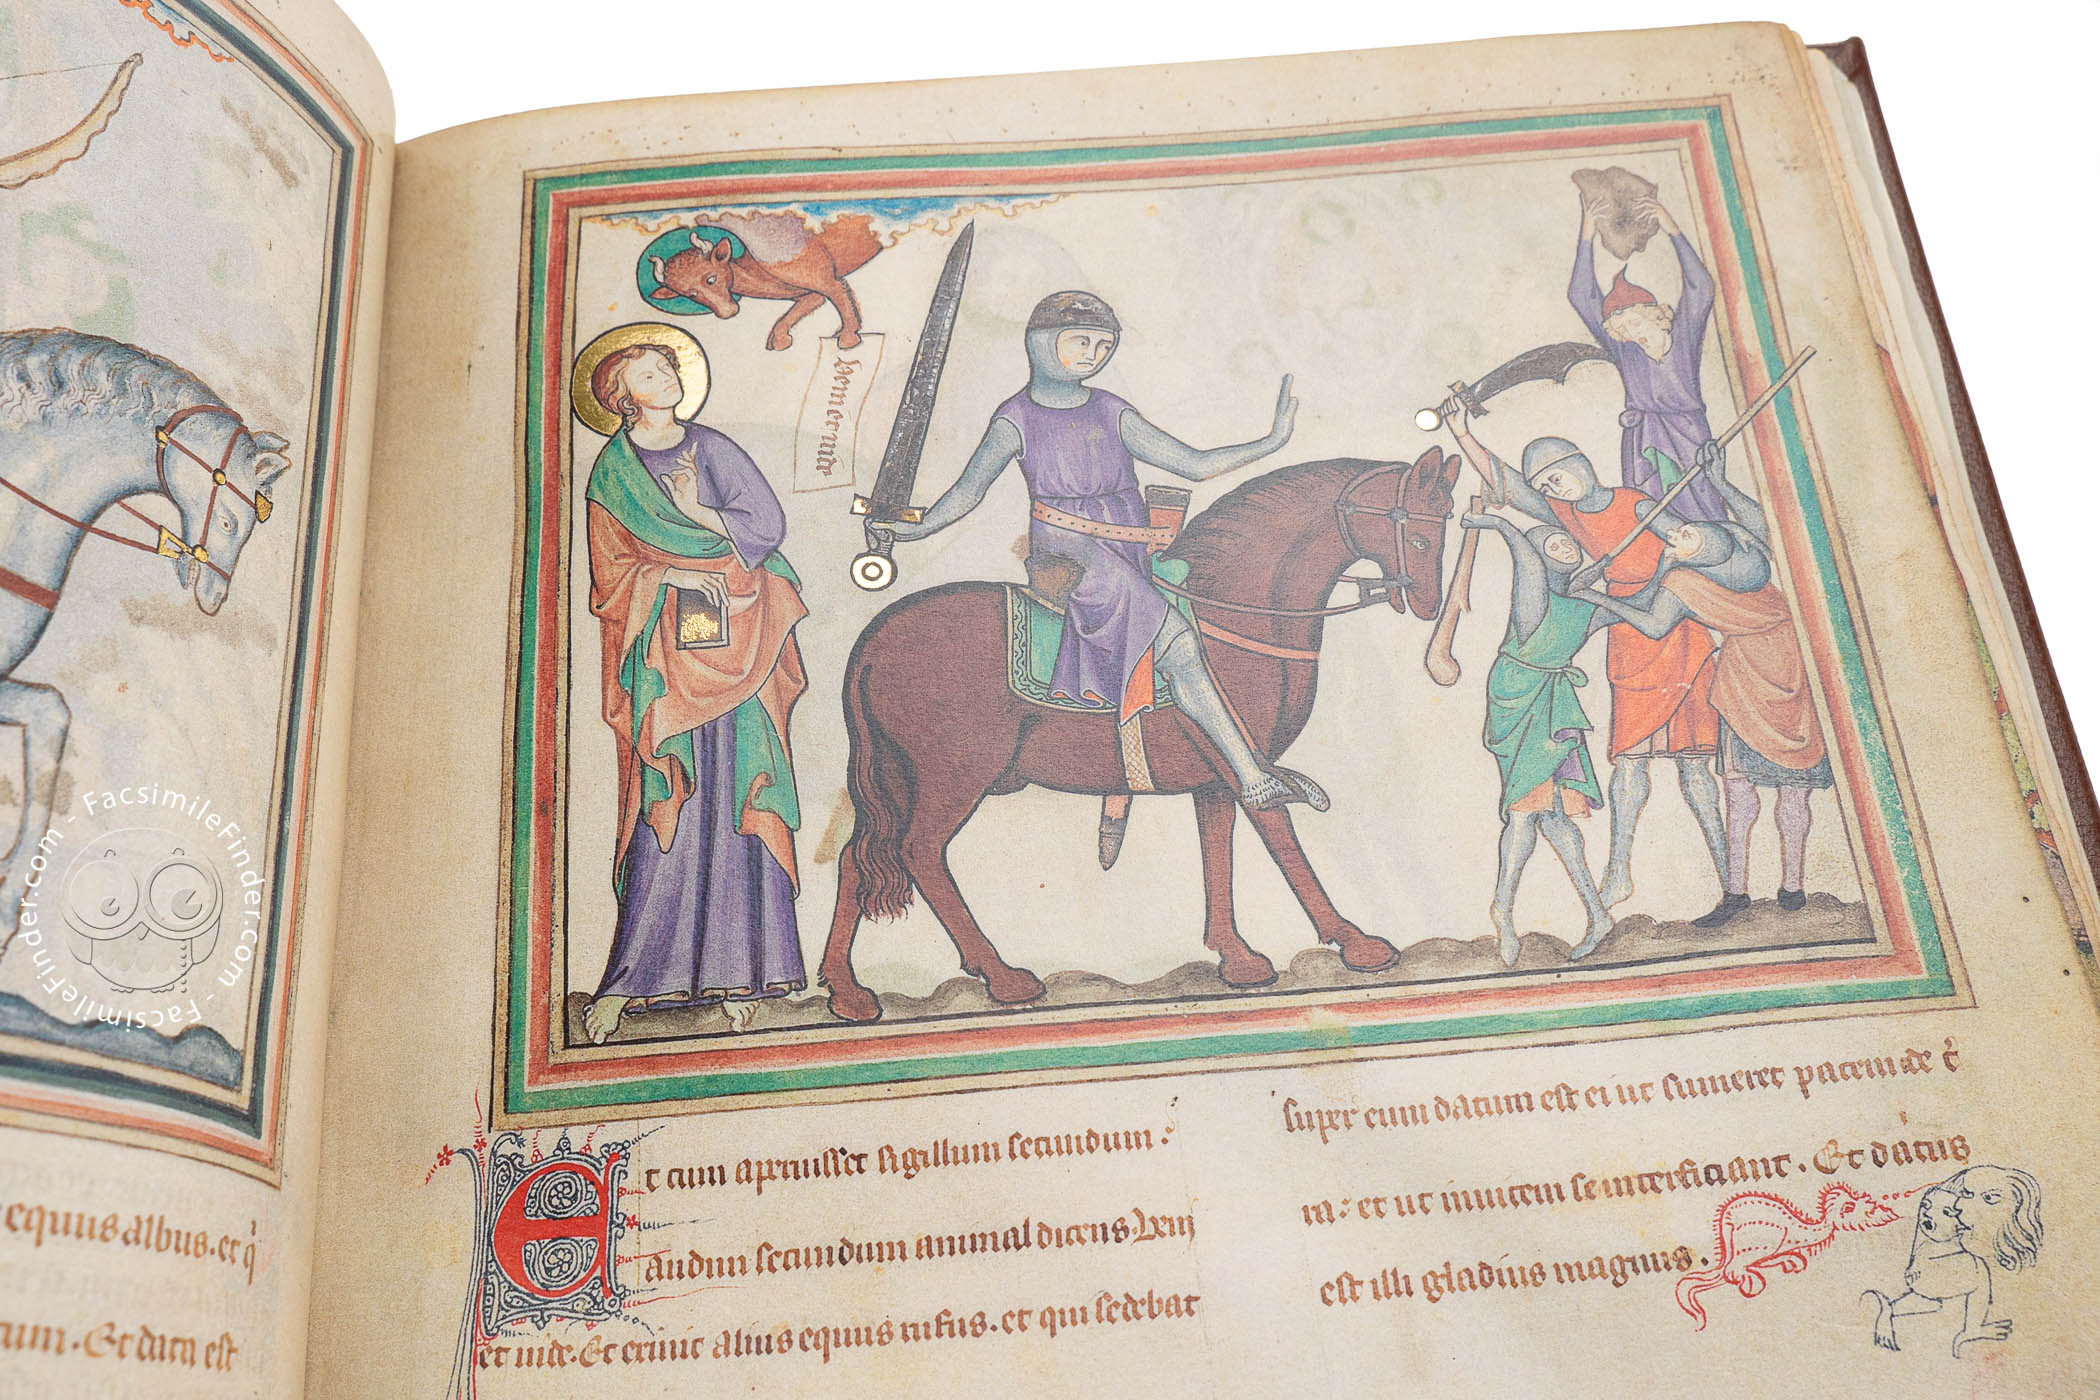 equus albus. et q
tum. Et data est
Veni et uide
Et cum aperuisset sigillum secundum:
audiui secundum animal dicens. Veni
et uide. Et exiuit alius equus rufus. et qui sedebat
super eum datum est ei ut sumeret pacem de t
ra: et ut inuicem se interficiant. Et datus
est illi gladius magnus.
FacsimileFinder.com - FacsimileFinder.com -